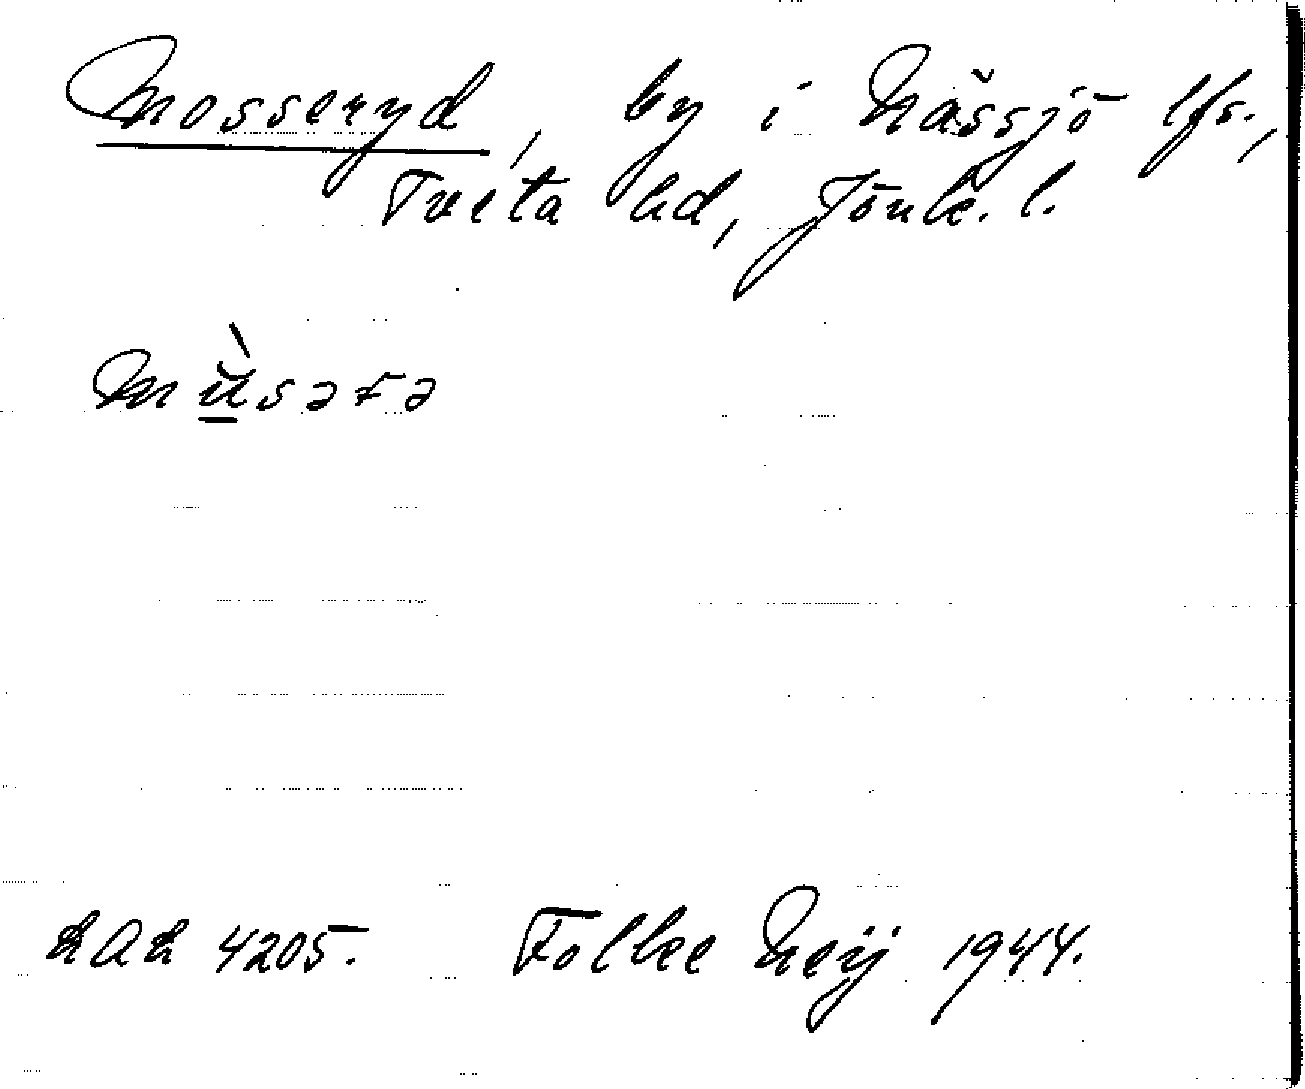 Mosseryd, by i Nässjö lfs.,
Tveta hd, Jönk. l.
hah 4205. Folke Heÿ 1944.